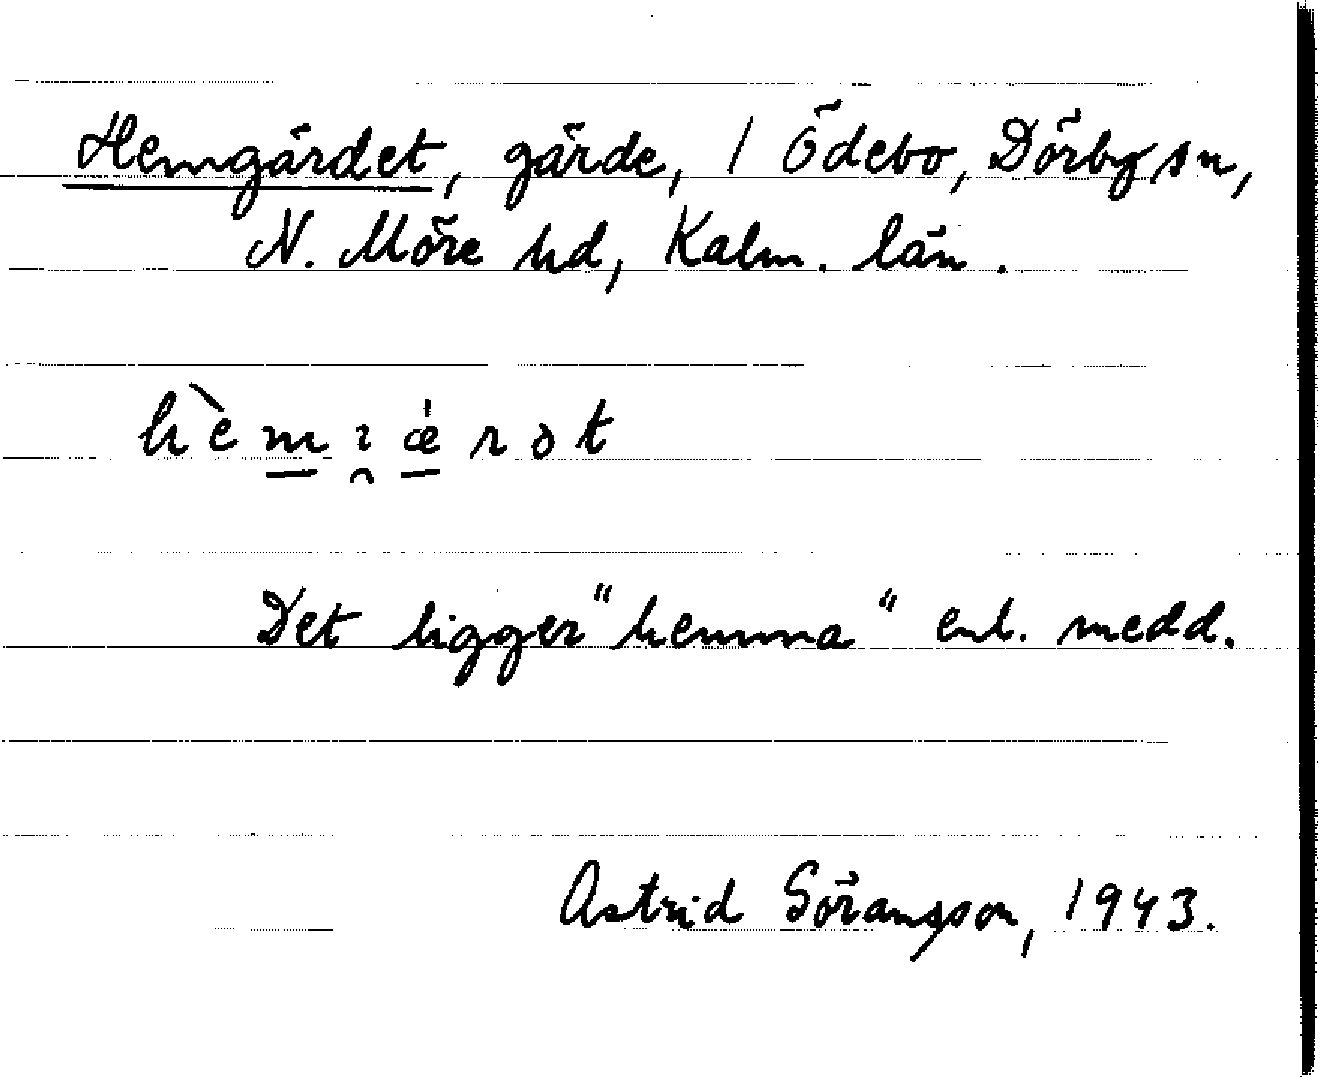 Hemgärdet, gärde, 1 Ödebo, Dörby sn,
N. Möre hd, Kalm. län.
hèmıǽrət
Det ligger "hemma" enl. medd.
Astrid Göransson, 1943.